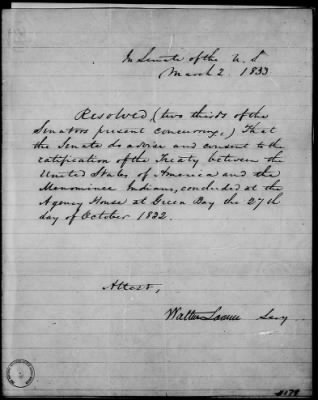 In Senate of the U. S
March 2. 1833
Resolved, (two thirds of the
Senators present concurring,) That
the Senate do advise and consent to the
ratification of the Treaty between the
United States of America and the
Menominee Indians, concluded at the
Agency House at Green Bay the 27th
day of October 1832.
Attest,
Walter Lowrie Secy